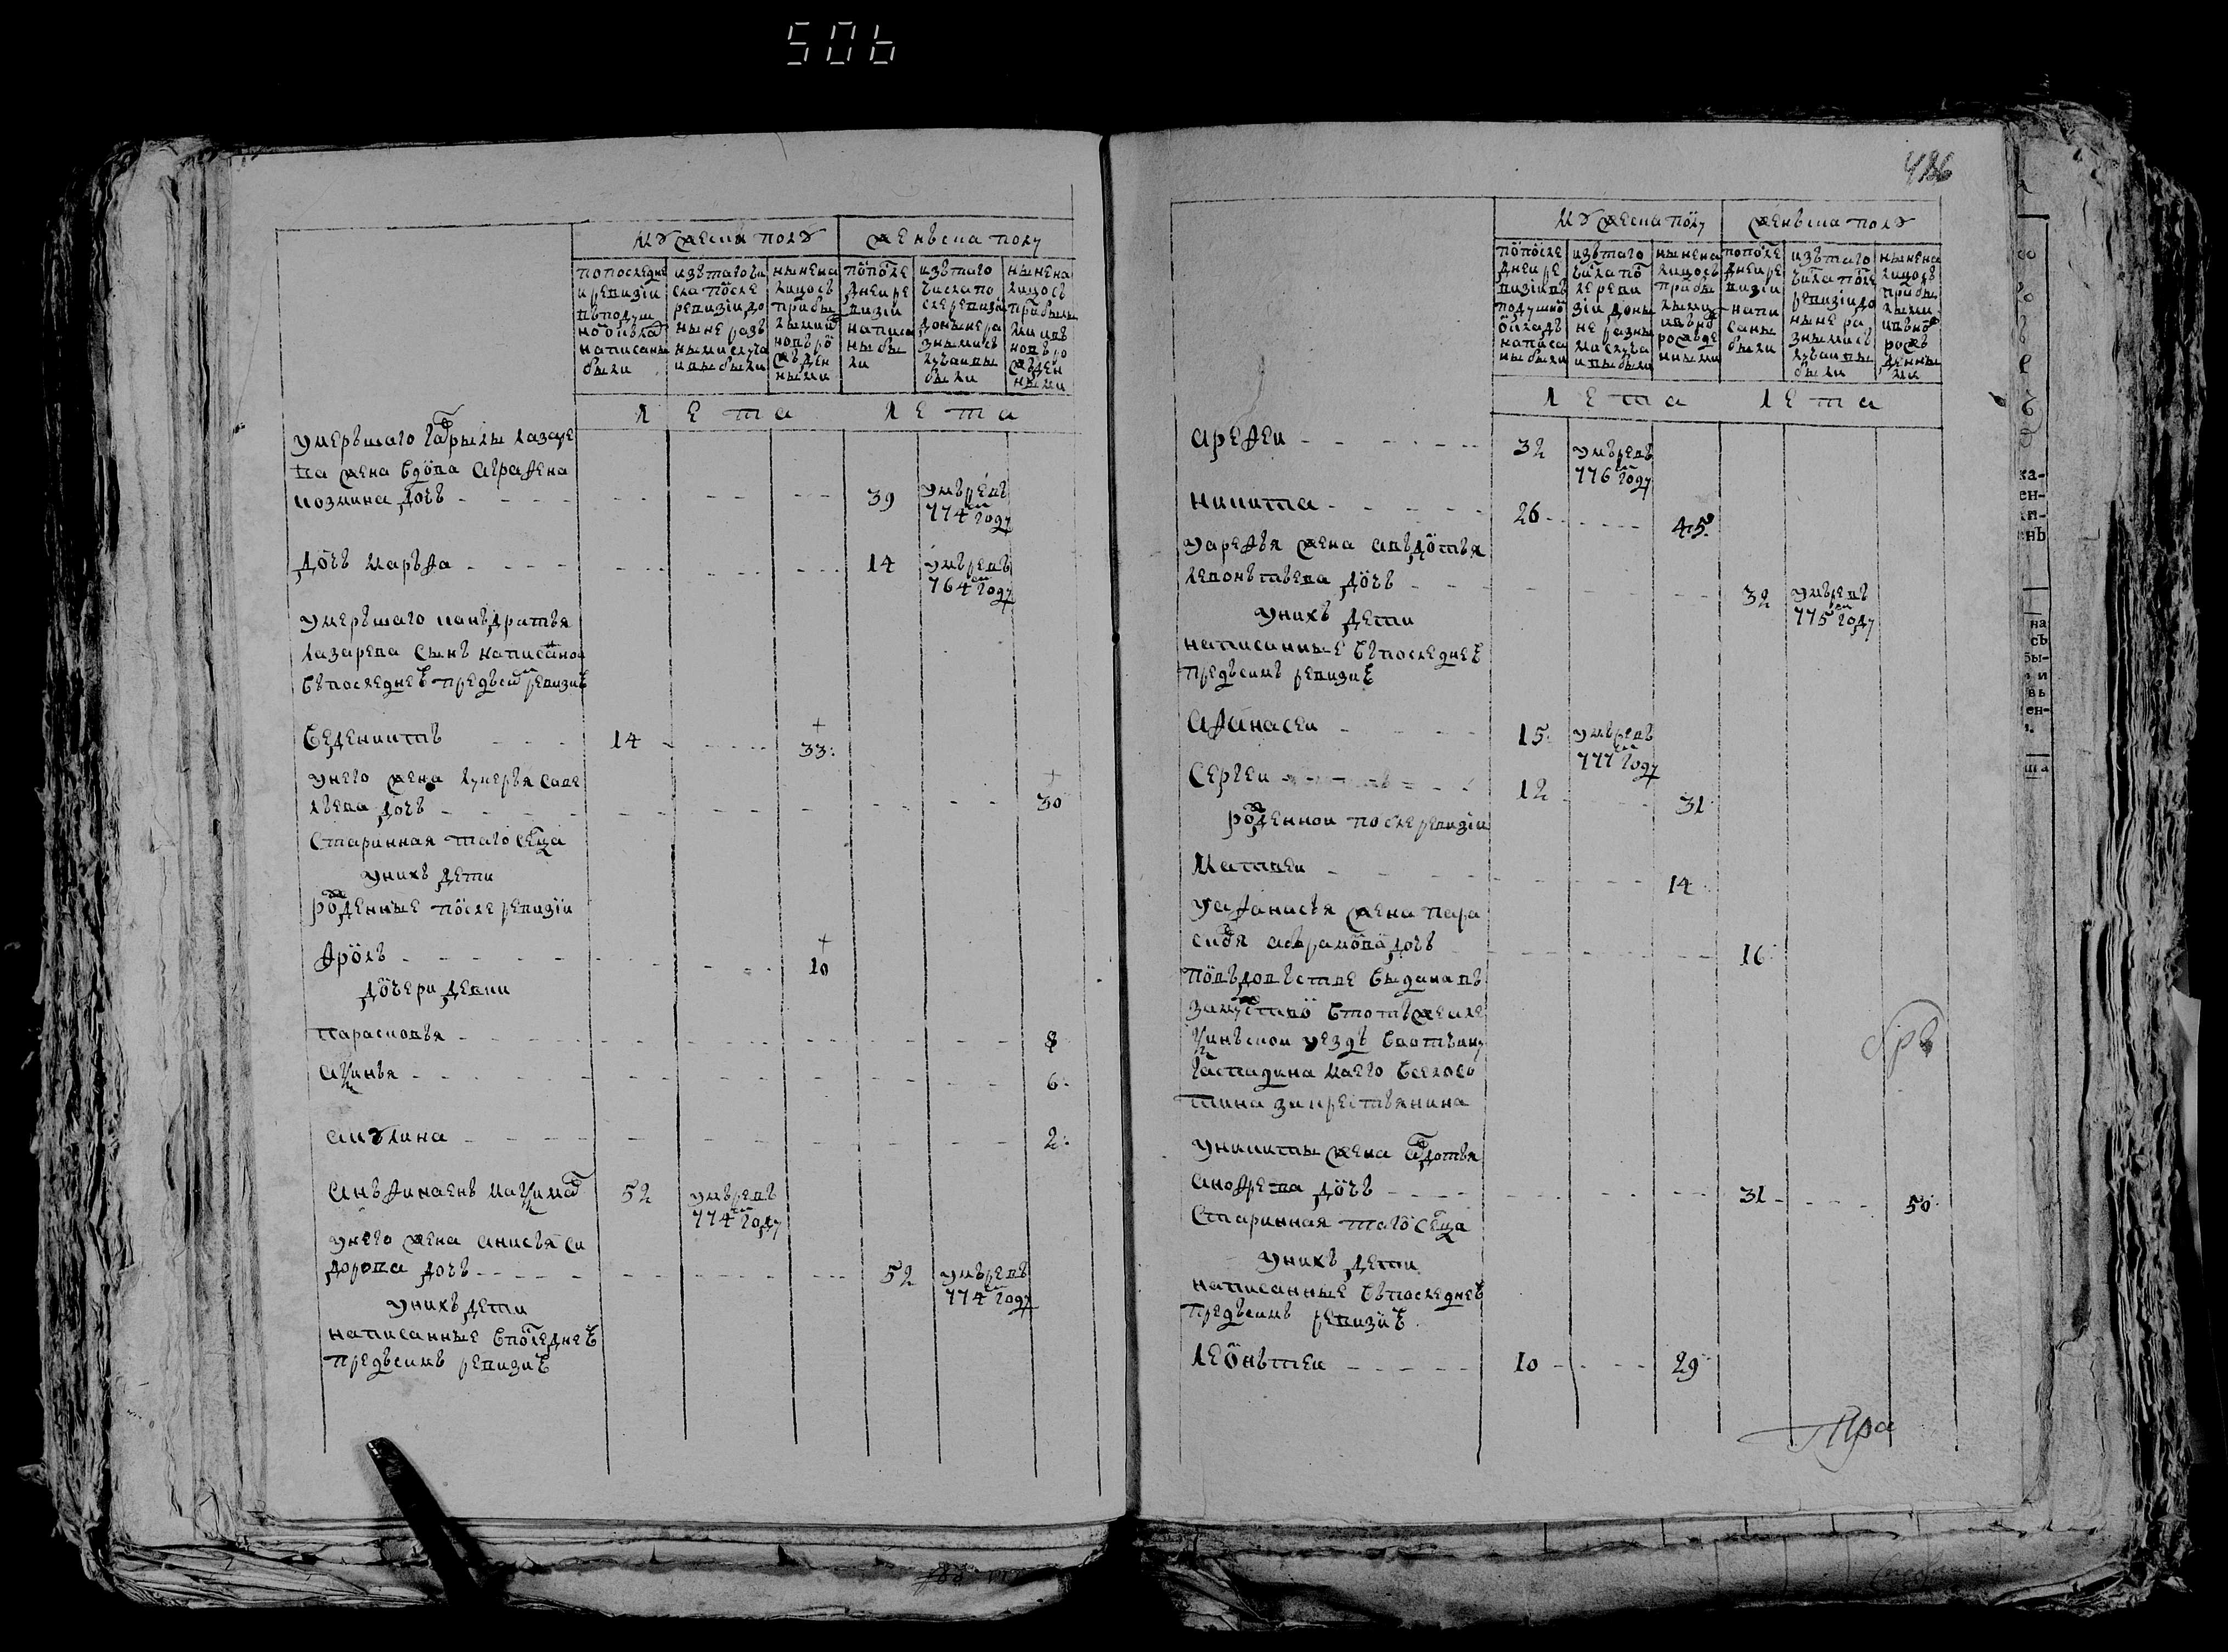 506
мужеска полу
женска полу
попоследне
и ревизіи
въподуш
ной окладъ
написаны
были
изътогочи
сла после
ревизіи до
ныне разъ
ными случа
и выбыли
ныне на
лицосъ
прибы
лыми и
новоро
жъден
ными
попосле
дней ре
визіи
написа
ны бы
ли
изътого
числа по
слеревизіи
доныне ра
зными съ
лучаи вы
были
ныне на
лицосъ
прибылы
ми и въ
новъ ро
жъден
ными
лета
лета
умеръшаго гаврилы лазаре
ва жена вдова аграфена
козмина дочь 39 умъревъ
774 году
дочь марѳа 14 умъревъ
764 году
умеръшаго панъдратья
лазарева сынъ написаной
въпоследней предъсим ревизиі
беденихтъ 14 33
унего жена лукерья саве
льева дочь 30
старинная того селца
унихъ дети
рожденные после ревизіи
фролъ 10
дочери девки
парасковья 8
аксинья 6
акулина 2
анъфиногенъ максимов 52 умъревъ
774 году
унего жена анисья си
дорова дочь 52 умъревъ
774 году
унихъ дети
написанные впоследней
предъсимъ ревизиі
486
мужеска полу
женъска полу
попосле
дней ре
визіи въ
подушно
окладъ
написа
ны были
изътого
числа по
сле реви
зіи доны
не разны
ми случа
и выбыли
ныне на
лицосъ
прибы
лыми
и въно
рожъде
нными
попосле
дней ре
визіи
напи
саны
были
изътого
числа после
ревизіи до
ныне ра
зными съ
лучаи вы
были
ныне на
лицосъ
прибы
лыми
и въно
рожъ
денны
ми
лета
лета
арефей 32 умъревъ
776 году
никита 26 45
уарефья жена авъдотья
леонътьева дочь 32 умъревъ
775 году
унихъ дети
написанные въпоследней
предъсимъ ревизиі
афанасей 15 умъревъ
777 году
сергей 12 31
рожденной после ревизіи
матвей 14
уафанасья жена пара
сковья абрамова дочь 16
повъдовъстве выдана въ
замужство втотъже
уезде вотчину
господина
за крестьянина
уникиты жена авдотья
анофрева дочь 31 50
старинная того селца
унихъ дети
написанные въпоследней
предъсимъ ревизиі
леонътей 10 29
Пра